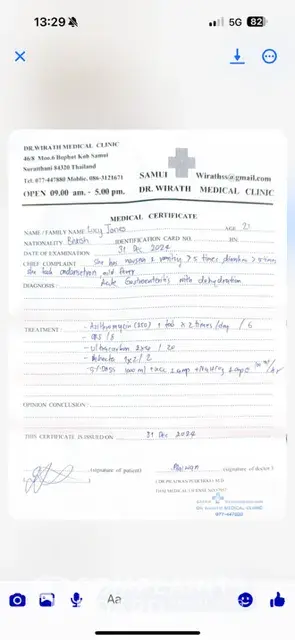 13:29
5G 82
DR.WIRATH MEDICAL CLINIC
46/8 Moo.6 Bophut Koh Samui
Suratthani 84320 Thailand
Tel. 077-447880 Moblie. 086-3121671
OPEN 09.00 am. - 5.00 pm.
SAMUI Wirathss@gmail.com
DR. WIRATH MEDICAL CLINIC
MEDICAL CERTIFICATE
NAME / FAMILY NAME Lucy Jones AGE 21
NATIONALITY British IDENTIFICATION CARD NO. HN.
DATE OF EXAMINATION 31 Dec 2024
CHIEF COMPLAINT She has nausea & vomiting > 5 times diarrhea > times
she took mild fever
DIAGNOSIS: Acute Gastroenteritis with dehydration
TREATMENT - Azithromycin (250) 1 tab x 2 times/day / 6
- ORS / 5
- Ultracarbon / 20
- 1x2 / 2
OPINION CONCLUSION
THIS CERTIFICATE IS ISSUED ON 31 Dec 2024
(signature of patient) (signature of doctor)
MEDICAL CLINIC
077-447880
Aa